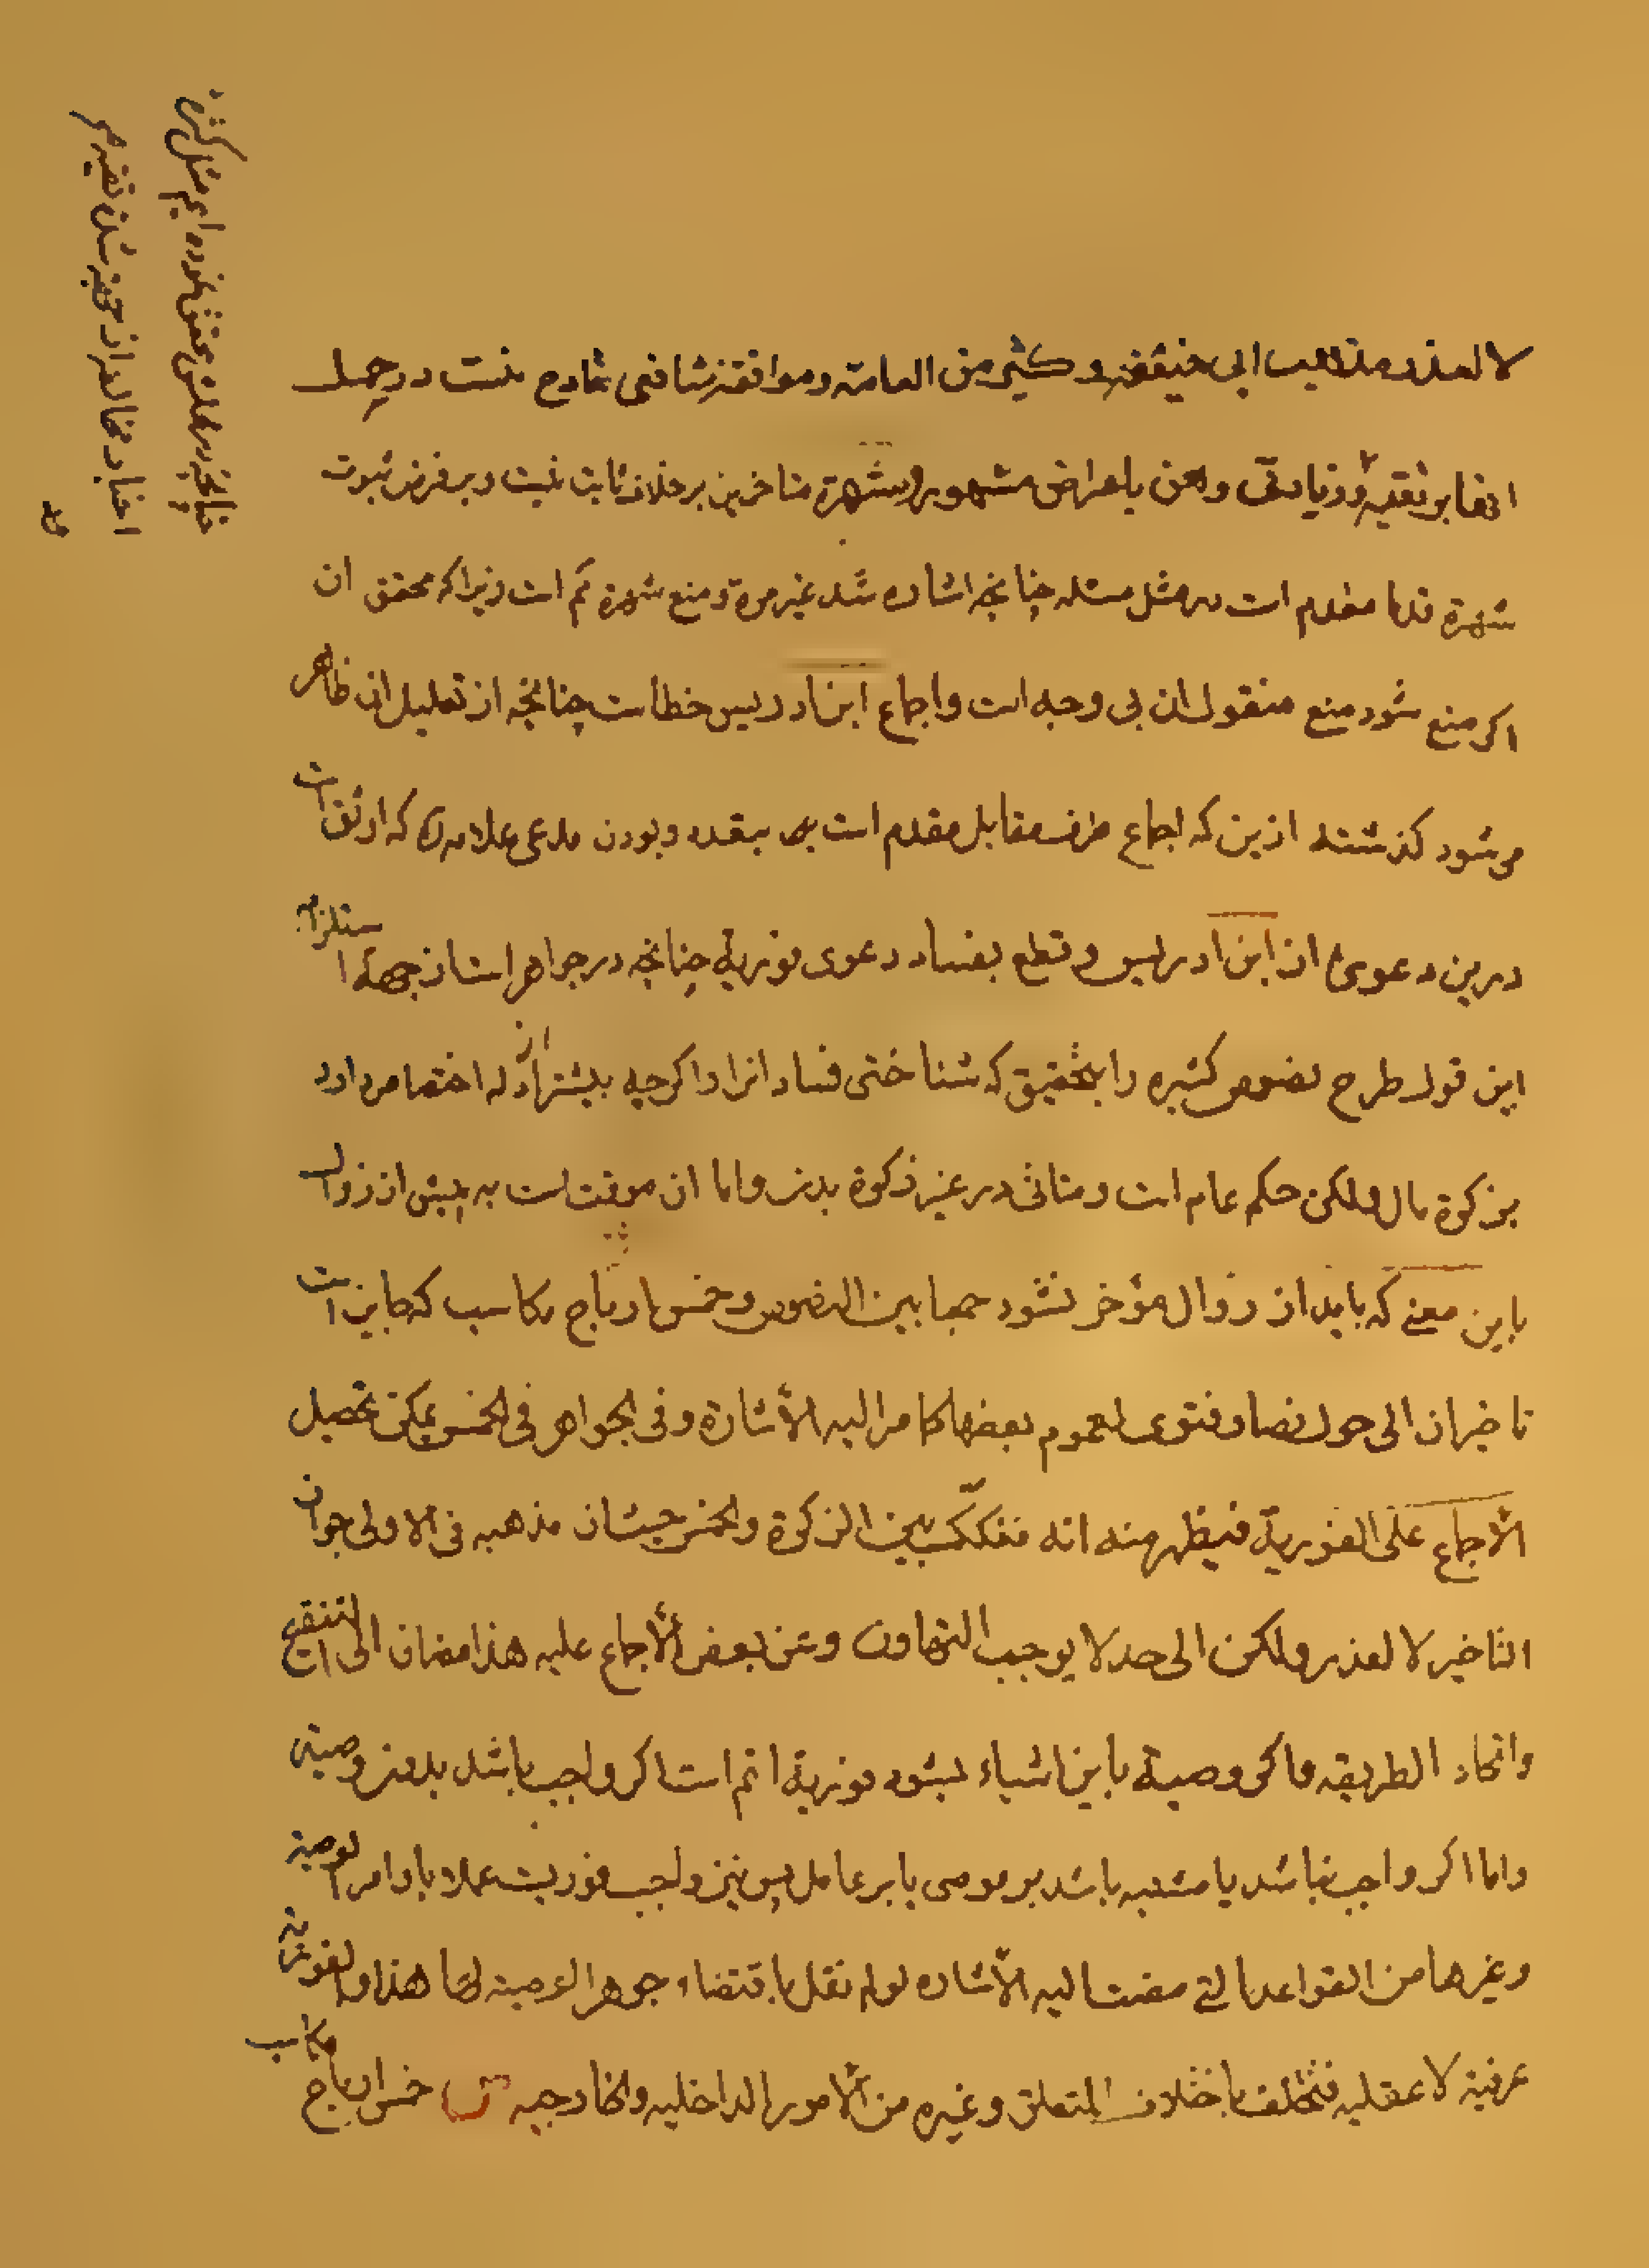 لا لعذر ومذهب ابی حنیفه و کثیر من العامة و موافقة شافعی قادح نیست در حمل
انها بر تقیه و زیادتی وهن باعراض مشهور و شهرة متاخرین برخلاف ثابت نیست و بر فرض ثبوت
شهرة قدما مقدم است در مثل مسئله چنانچه اشاره شد غیر مرة و منع شهرة کم است زیرا که محقق ان
اکر منع شود منع منقول ان بی وجه است و اجماع ابن ادریس خطأست چنانچه از تعلیل ان ظاهر
می شود کذشته ازین که اجماع طرف مقابل مقدم است بر بتعدد و بودن مدعی علامه که اوثق است
درین دعوی از ابن ادریس و قطع بفساد دعوی فوریة چنانچه در جواهر است از جهة استلزام
این قول طرح نصوص کثیره را بتحقیق که شناختی فساد انرا و اکرچه بیشتر از ادله اختصاص دارد
بزکوة مال ولکن حکم عام است و متاتی در غیر زکوة بدن و اما ان موقت است به پیش از زوال
باین معنی که باید از زوال مؤخر نشود جمعا بین النصوص و خمس ارباح مکاسب که جایز است
تاخیر ان الی حول نصا و فتوی لعموم بعضها کما مر الیه الأشارة و فی الجواهر فی الخمس یمکن تحصیل
الأجماع علی الفوریة فیظهر منه انه مفکک بین الزکوة والخمس حیث ان مذهبه فی الاولی جواز
التاخیر لا لعذر ولکن الی حد لا یوجب التهاون و عن بعض الأجماع علیه هذا مضاف الی التنقیح
واتحاد الطریقه واکر وصیة باین اشیاء بشود فوریة اتم است اکر واجب باشد بدون وصیة
واما اکر واجب نباشد یا مشتبه باشد بر موصی یا بر عامل پس نیز واجب فوریت عملا باوامر الوصیة
وغیرها من القواعد التی مضت الیه الأشاره لو لم نقل باقتضاء جوهر الوصیه لها هذا والفوریة
عرفیة لا عقلیه فتختلف باختلاف المتعلق وغیره من الأمور الداخلیه والخارجیه س خمس ارباح مکاسب